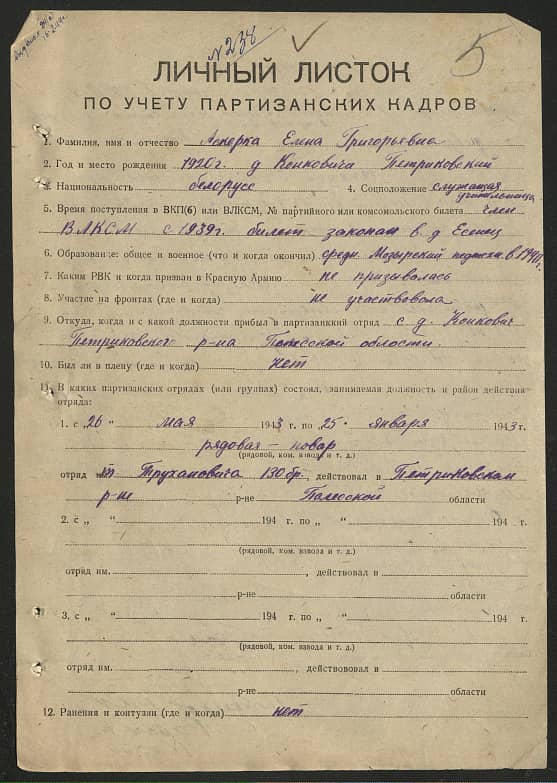 № 238
5
ЛИЧНЫЙ ЛИСТОК
ПО УЧЕТУ ПАРТИЗАНСКИХ КАДРОВ
1. Фамилия, имя и отчество Аскерка Елена Григорьевна
2. Год и место рождения 1920 г. д Конковичи Петриковский
3. Национальность белорусс 4. Соцположение служащая
учительница
5. Время поступления в ВКП(б) или ВЛКСМ, № партийного или комсомольского билета член
ВЛКСМ с 1939г. билет закопан в д
6. Образование: общее и военное (что и когда окончил) средн. Мозырский педтехн. в 1940г.
7. Каким РВК и когда призван в Красную Армию не призывалась
8. Участие на фронтах (где и когда) не участвовала
9. Откуда, когда и с какой должности прибыл в партизанкий отряд с д. Конкович
Петриковского р-на Полесской области.
10. Был ли в плену (где и когда) нет
11. В каких партизанских отрядах (или группах) состоял, занимаемая должность и район действия
отряда:
1. с „26 “ мая 1943 г. по „25 “ января 1943 г.
рядовая – повар
(рядовой, ком. взвода и т. д.)
отряд им Трухановича 130 бр., действовал в Петриковском
р-не р-не Полесской области
2. с „ “ 194 г. по „ “ 194 г.
(рядовой, ком. взвода и т. д.)
отряд им. , действовал в
р-не области
3. с „ “ 194 г. по „ “ 194 г.
(рядовой, ком. взвода и т. д.)
отряд им. , действововал в
р-не области
12. Ранения и контузии (где и когда) нет